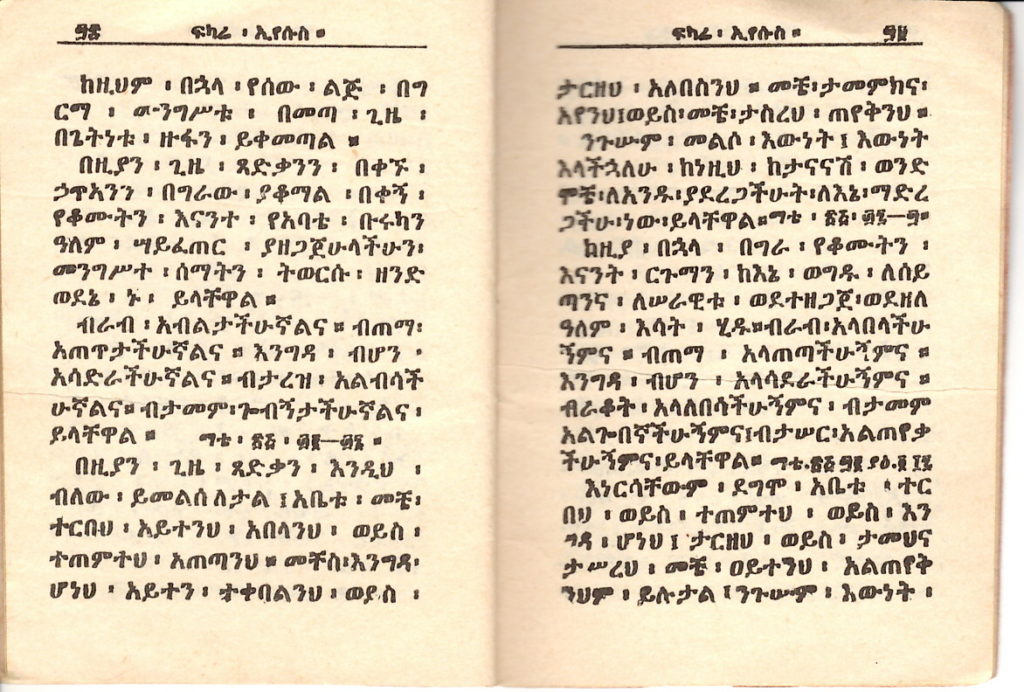 ፵፰ ፍካሬ ፡ ኢየሱስ ።
ከዚህም ፡ በኋላ ፡ የሰው ፡ ልጅ ፡ በግ
ርማ ፡ መንግሥቱ ፡ በመጣ ፡ ጊዜ ፡
በጌትነቱ ፡ ዙፋን ፡ ይቀመጣል ።
በዚያን ፡ ጊዜ ፡ ጻድቃንን ፡ በቀኙ ፡
ኃጥኣንን ፡ በግራው ፡ ያቆማል ፡ በቀኝ ፡
የቆሙትን ፡ እናንተ ፡ የአባቴ ፡ ቡሩካን
ዓለም ፡ ሣይፈጠር ፡ ያዘጋጀሁላችሁን፡
መንግሥተ ፡ ሰማያትን ፡ ትወርሱ ፡ ዘንድ
ወደኔ ፡ ኑ ፡ ይላቸዋል ።
ብራብ ፡ አብልታችሁኛልና ። ብጠማ፡
አጠጥታችሁኛልና ። እንግዳ ፡ ብሆን ፡
አሳድራችሁኛልና ። ብታረዝ ፡ አልብሳች
ሁኛልና። ብታመም፡ጐብኝታችሁኛልና፡
ይላቸዋል ። ማቴ ፡ ፳፭ ፡
በዚያን ፡ ጊዜ ፡ ጻድቃን ፡ እንዲህ ፡
ብለው ፡ ይመልሰለታል ፤ አቤቱ ፡ መቼ፡
ተርበህ ፡ አይተንህ ፡ አበላንህ ፡ ወይስ ፡
ተጠምተህ ፡ አጠጣንህ ። መቸስ፡እንግዳ፡
ሆነህ ፡ አይተን ፡ ተቀበልንህ ፡ ወይስ ፡
ፍካሬ ፡ ኢየሱስ ።
ታርዘህ ፡ አለበስንህ ። መቼ፡ታመምክና፡
አየንህ፤ወይስ፡መቼ፡ታስረህ ፡ ጠየቅንህ ።
ንጉሡም ፡ መልሶ ፡ እውነት ፤ እውነት
እላችኋለሁ ፡ ከነዚህ ፡ ከታናናሽ ፡ ወንድ
ሞቼ፡ለአንዱ፡ያደረጋችሁት፡ለእኔ፡ማድረ
ጋችሁ፡ነው፡ይላቸዋል።ማቴ ፡ ፳፭፡
ከዚያ ፡ በኋላ ፡ በግራ ፡ የቆሙትን ፡
እናንት ፡ ርጉማን ፡ ከእኔ ፡ ወግዱ ፡ ለሰይ
ጣንና ፡ ለሠራዊቱ ፡ ወደተዘጋጀ፡ወደዘለ
ዓለም ፡ እሳት ፡ ሂዱ።ብራብ፡አላበላችሁ
ኝምና ። ብጠማ ፡ አላጠጣችሁኝምና ።
እንግዳ ፡ ብሆን ፡ አላሳደራችሁኝምና ።
ብራቆት ፡ አላለበሳችሁኝምና ፡ ብታመም
አልጐበኛችሁኝምና፤ብታሠር፡አልጠየቃ
ችሁኝምና፡ይላቸዋል። ማቴ.፳፭
እነርሳቸውም ፡ ደግሞ ፡ አቤቱ ፡ ተር
በህ ፡ ወይስ ፡ ተጠምተህ ፡ ወይስ ፡ እን
ግዳ ፡ ሆነህ ፤ ታርዘህ ፡ ወይስ ፡ ታመህና
ታሥረህ ፡ መቼ ፡ ዐይተንህ ፡ አልጠየቅ
ንህም ፡ ይሉታል ፤ ንጉሡም ፡ እውነት ፡